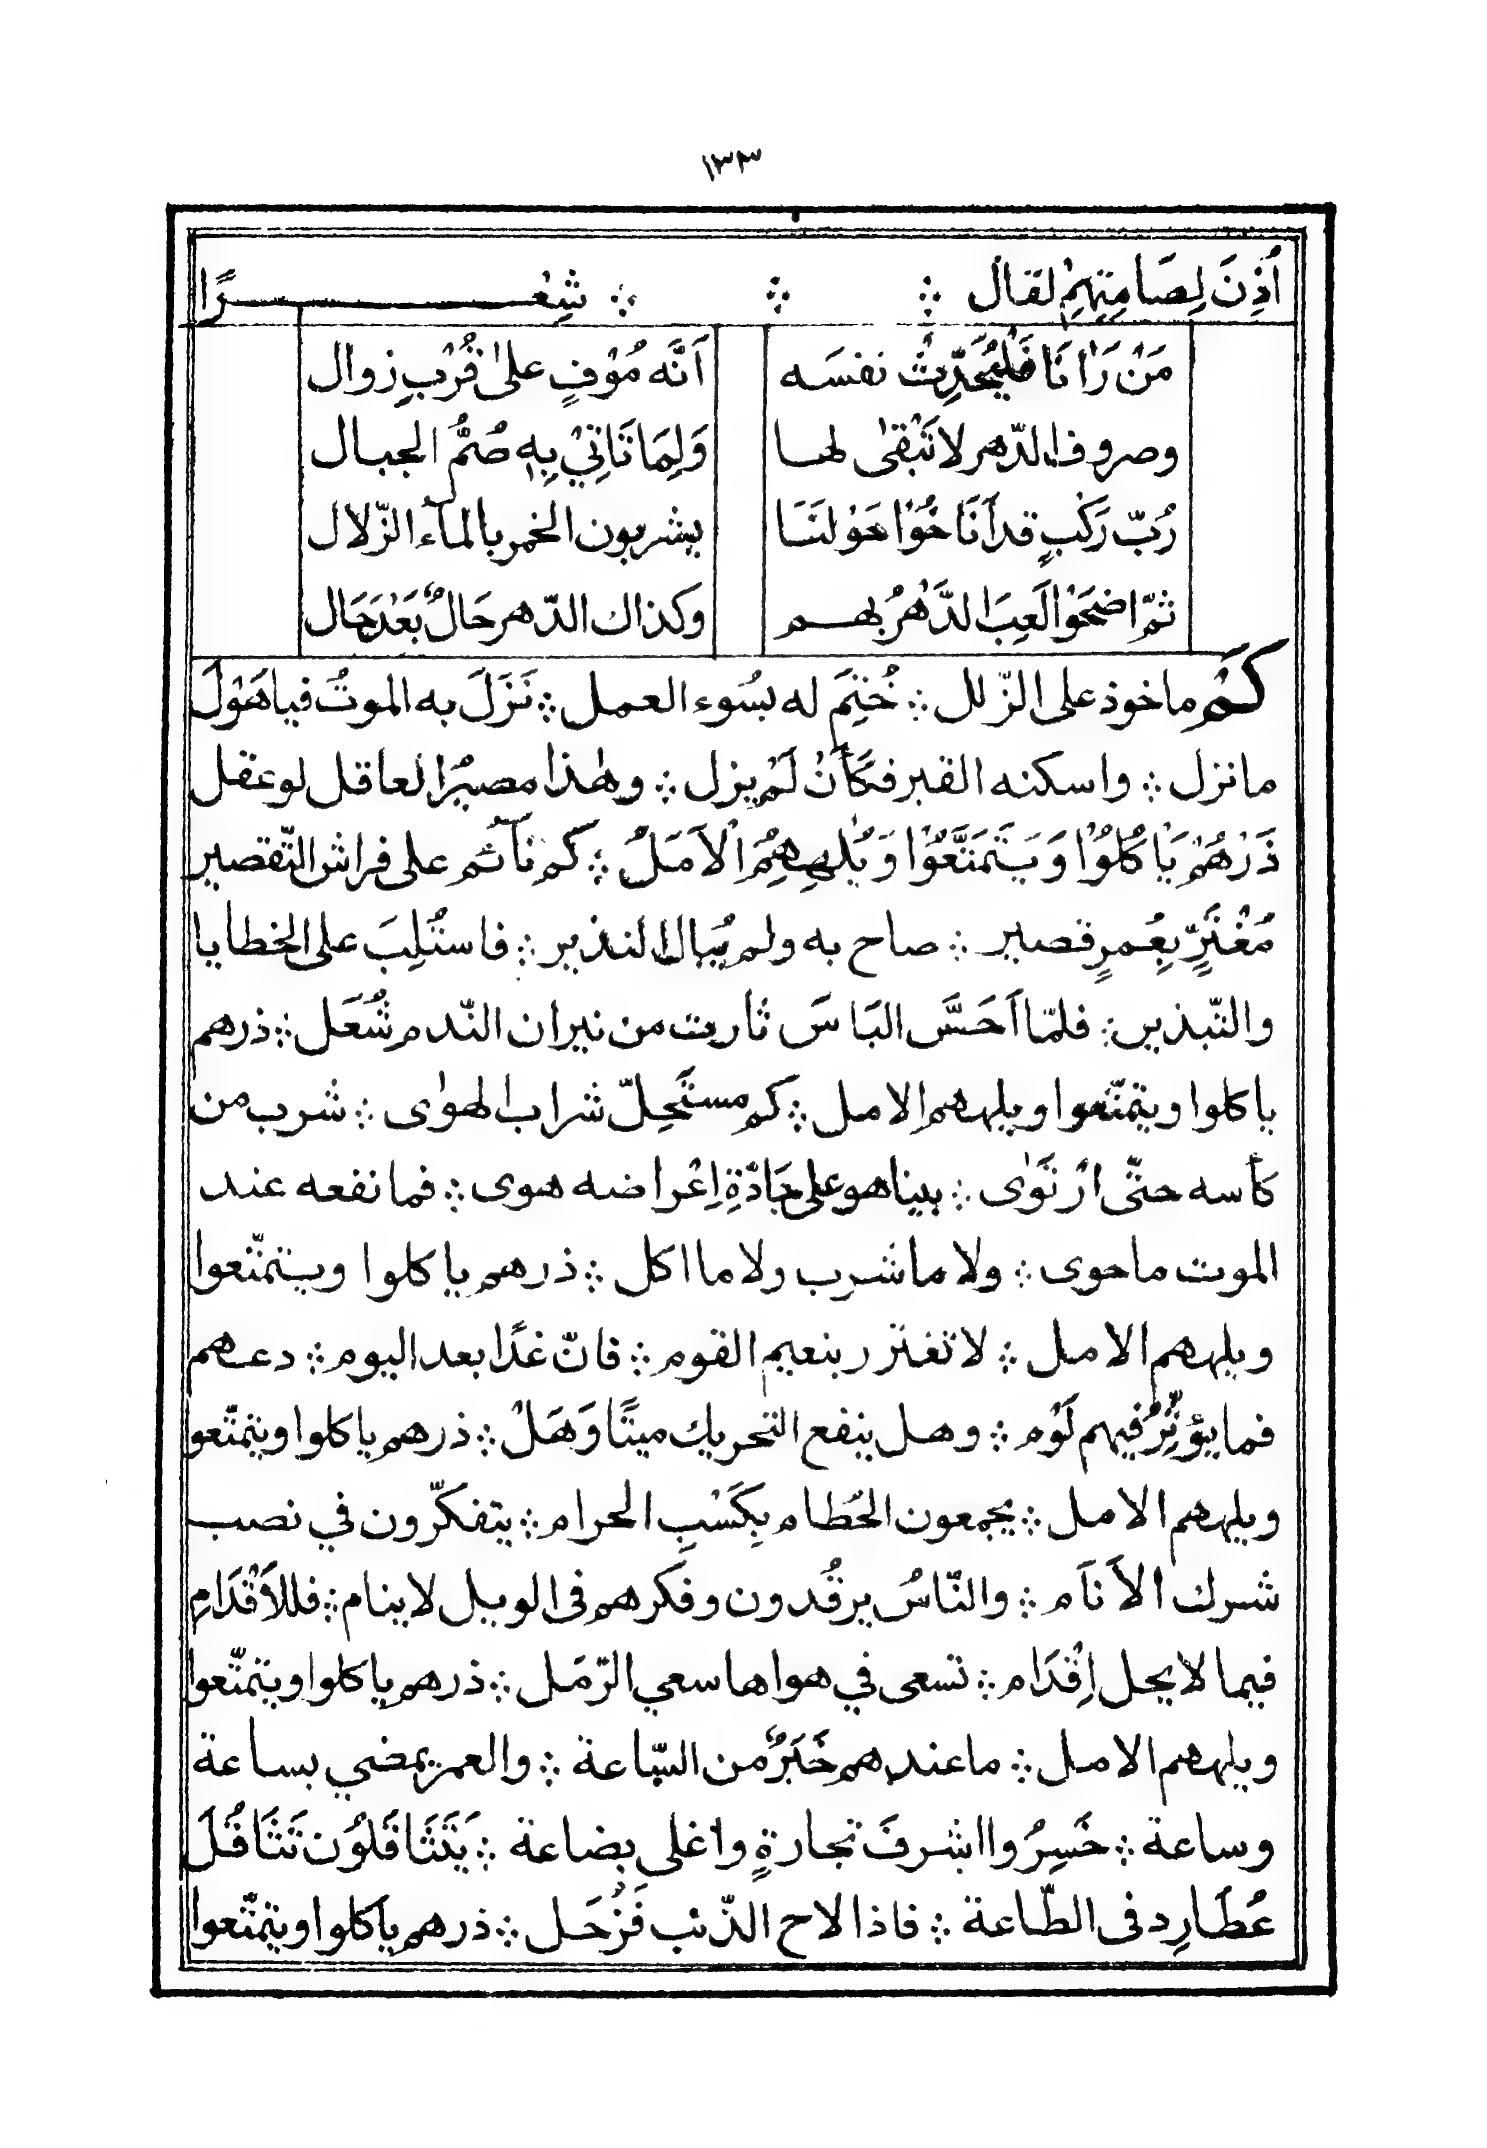 ١٣٣
اُذِنَ لِصَامِتِهِمْ لقال ∴ ∴ ∴ شِعْرًا
مَنْ رَاٰنَا فَلْيُحَدِّثْ نفسَه اَنَّه مُوْفٍ علىٰ قُرْبِ زوال
وصروف الدّهر لا تَبْقىٰ لها وَلِمَا تَاتِيْ بِهٖ صُمُّ الجبال
رُبّ رَكْبٍ قد اَنَاخُوْا حَوْلنَا يشربون الخمر بالمآء الزّلال
ثمّ اضحَوْا لَعِبَ الدَّهْرُ بهم وكذاك الدّهر حَالٌ بَعْدَ حَال
كم ماخوذ على الزّلل ∴ خُتِمَ له بسُوء العمل ∴ نَزَلَ به الموتُ فيا هَوْلَ
ما نزل ∴ واسكنه القبر فكَاَنْ لَمْ يزل ∴ وهٰذا مصيرُ العاقل لو عقل
ذَرْهُمْ يَاكُلُوْا وَيَتَمَتَّعُوْا وَيُلهِهِمُ الْاَمَلُ ∴ كم نآئم على فراش التّقصير
مُغْتَرٍّ بِعُمرٍ قصير ∴ صاح به ولم يُبال النذير ∴ فاستُلِبَ على الخطايا
والتّبذير ∴ فلمّا اَحَسَّ البَاسَ ثارت من نيران النّدم شُعَل ∴ ذرهم
ياكلوا ويتمتّعوا ويلههم الامل ∴ كم مستَحِلّ شراب الهوٰى ∴ شرب من
كأسه حتّى ارْتَوٰى ∴ بينا هو على جَادّةِ اِعْراضه هوى ∴ فما نفعه عند
الموت ما حوى ∴ ولا ما شرب ولا ما اكل ∴ ذرهم ياكلوا ويتمتّعوا
ويلههم الامل ∴ لا تغترر بنعيم القوم ∴ فانّ غدًا بعد اليوم ∴ دعهم
فما يؤثِّرُ فيهم لَوْم ∴ وهل ينفع التحريك ميتًا وَهَلْ ∴ ذرهم ياكلوا ويتمتّعوا
ويلههم الامل ∴ يجمعون الحُطام بِكَسْبِ الحرام ∴ يتفكّرون في نصب
شرك الاَنَام ∴ والنّاسُ يرقُدون وفكرهم فى الويل لا ينام ∴ فللاَقْدَامِ
فيما لا يحل اِقْدَام ∴ تسعى في هواها سعي الرّمَل ∴ ذرهم ياكلوا ويتمتّعوا
ويلههم الامل ∴ ما عندهم خَبَرٌ من السّاعة ∴ والعمر يمضي بساعة
وساعة ∴ خَسِرُوا اشرفَ تجارةٍ واغلى بضاعة ∴ يَتَثَاقَلُوْن تَثَاقُلَ
عُطَارِد فى الطّاعة ∴ فاذا لاح الذّئب فَزُحَل ∴ ذرهم ياكلوا ويتمتّعوا